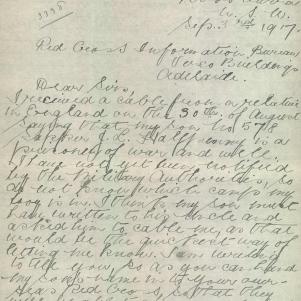 3398
N.S.W.
Sep. 3rd 1917.
Red Cross Information Bureau
Verco Buildings
Adelaide.
Dear Sirs,
I received a cable from a relative
in England on the 30th of August
saying that my son No 578
Sapper
prisoner of war and well.
I have not yet been notified
by the Military Authorities, so
do not know which camp my
boy is in. I think my son must
have written to his uncle and
asked him to cable me, as that
would be the quickest way of
letting me know. I am writing
to ask you, so as you can hand
name in to your over-
seas Red Cross, so that they